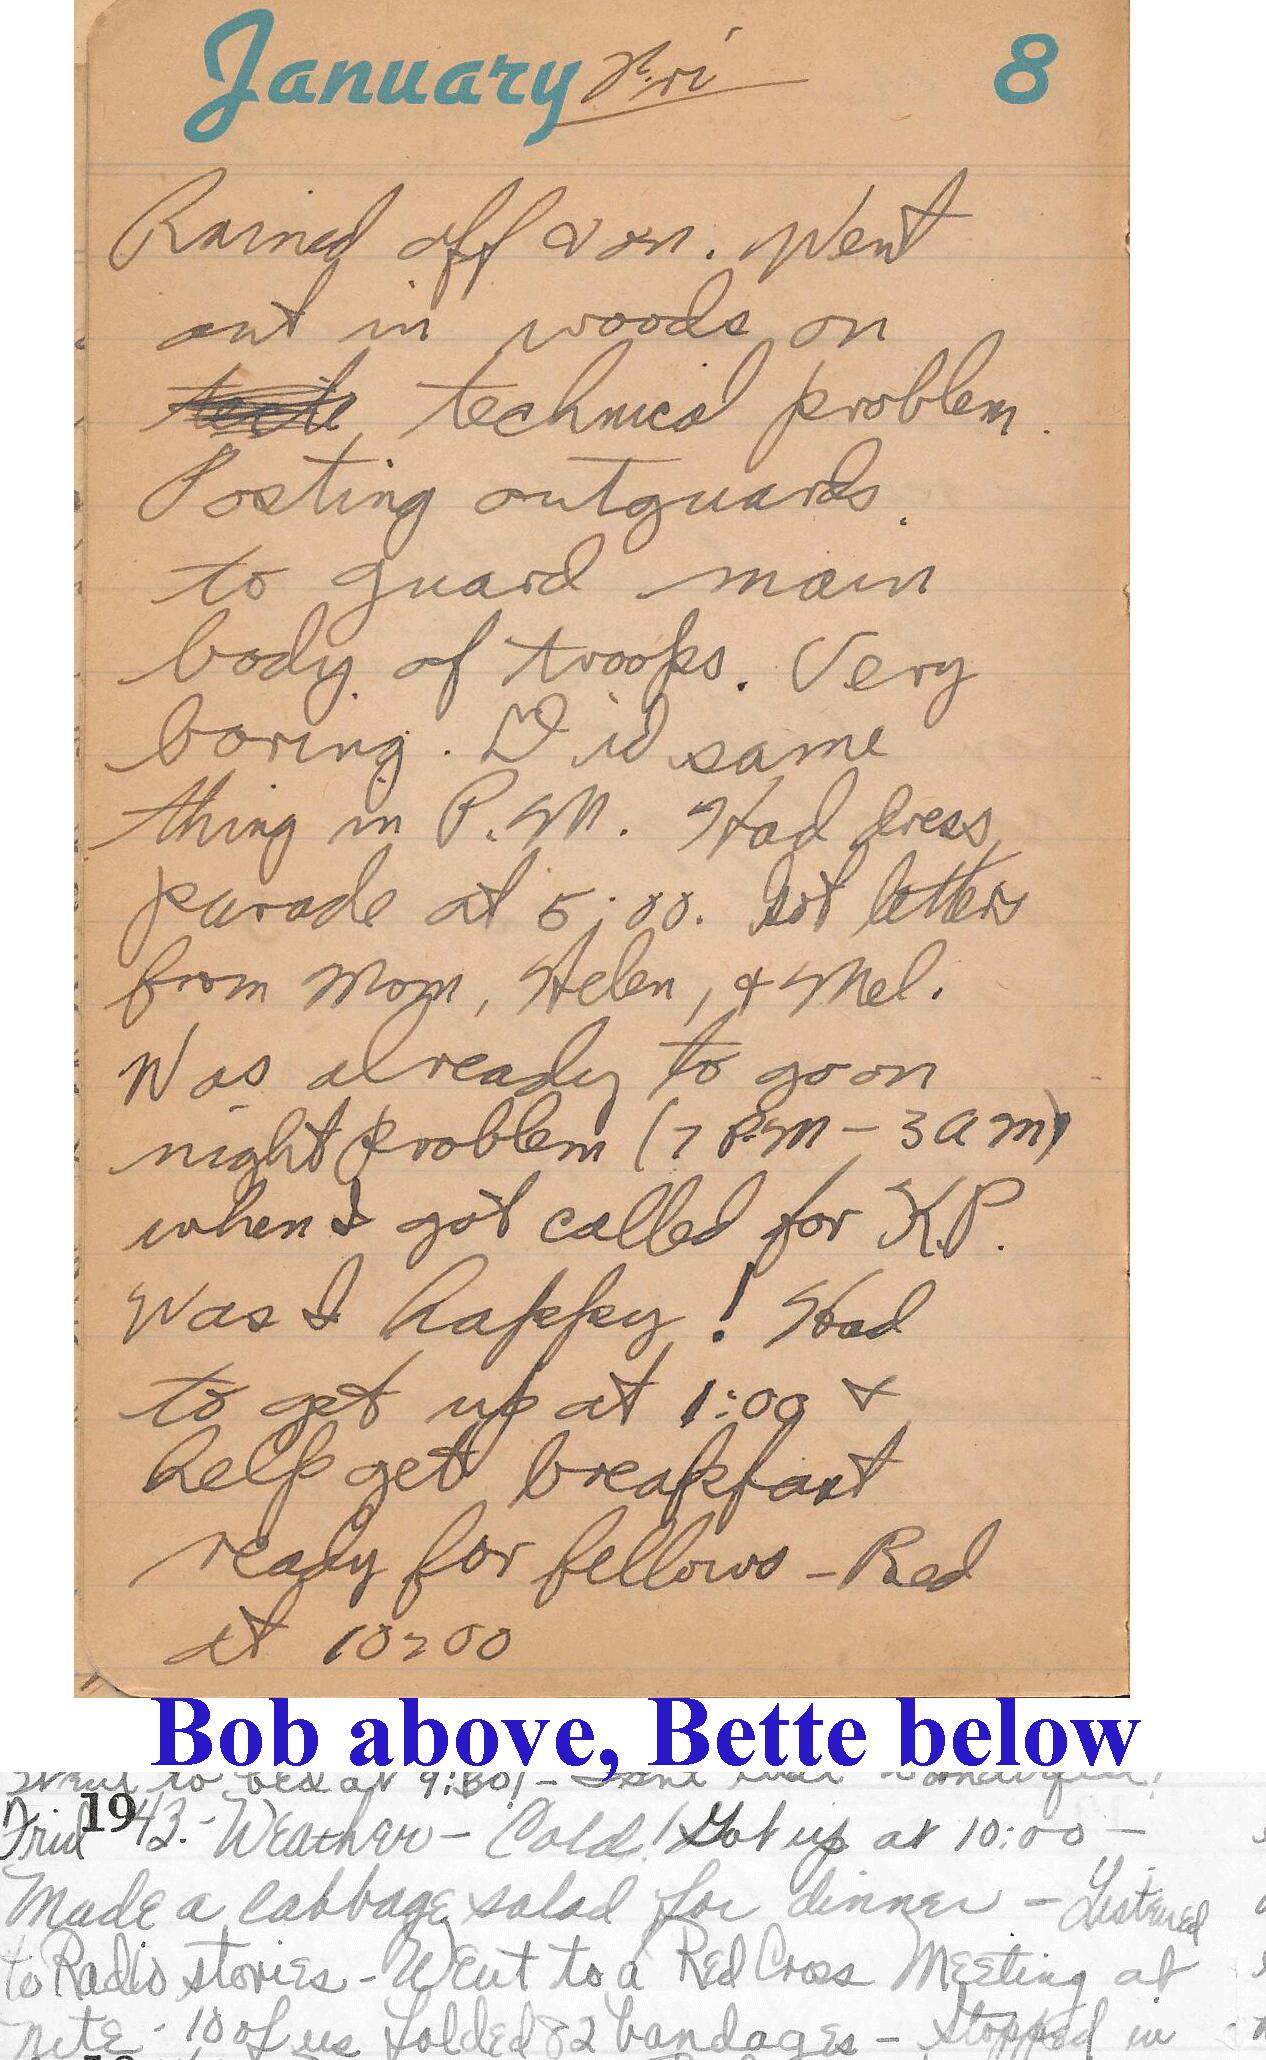 January Fri 8
Rained off & on. Went
out in woods on
technical problem.
Posting outguards.
to guard main
body of troops. Very
boring. Did same
thing in P.M. Had dress
parade at 5:00. Got letters
from Mom, Helen, & Mel.
Was already to go on
night problem (7 P.M - 3 A M)
when I got called for K.P.
Was I happy! Had
to get up at 1:00 &
help get breakfast
ready for fellows - Bed
at 10:00
Bob above, Bette below
to bed at 9:30! -
Frid 1943. - Weather - Cold! Got up at 10:00 -
Made a cabbage salad for dinner - Listened
to Radio stories - Went to a Red Cross Meeting at
nite - 10 of us folded 82 bandages - Stopped in